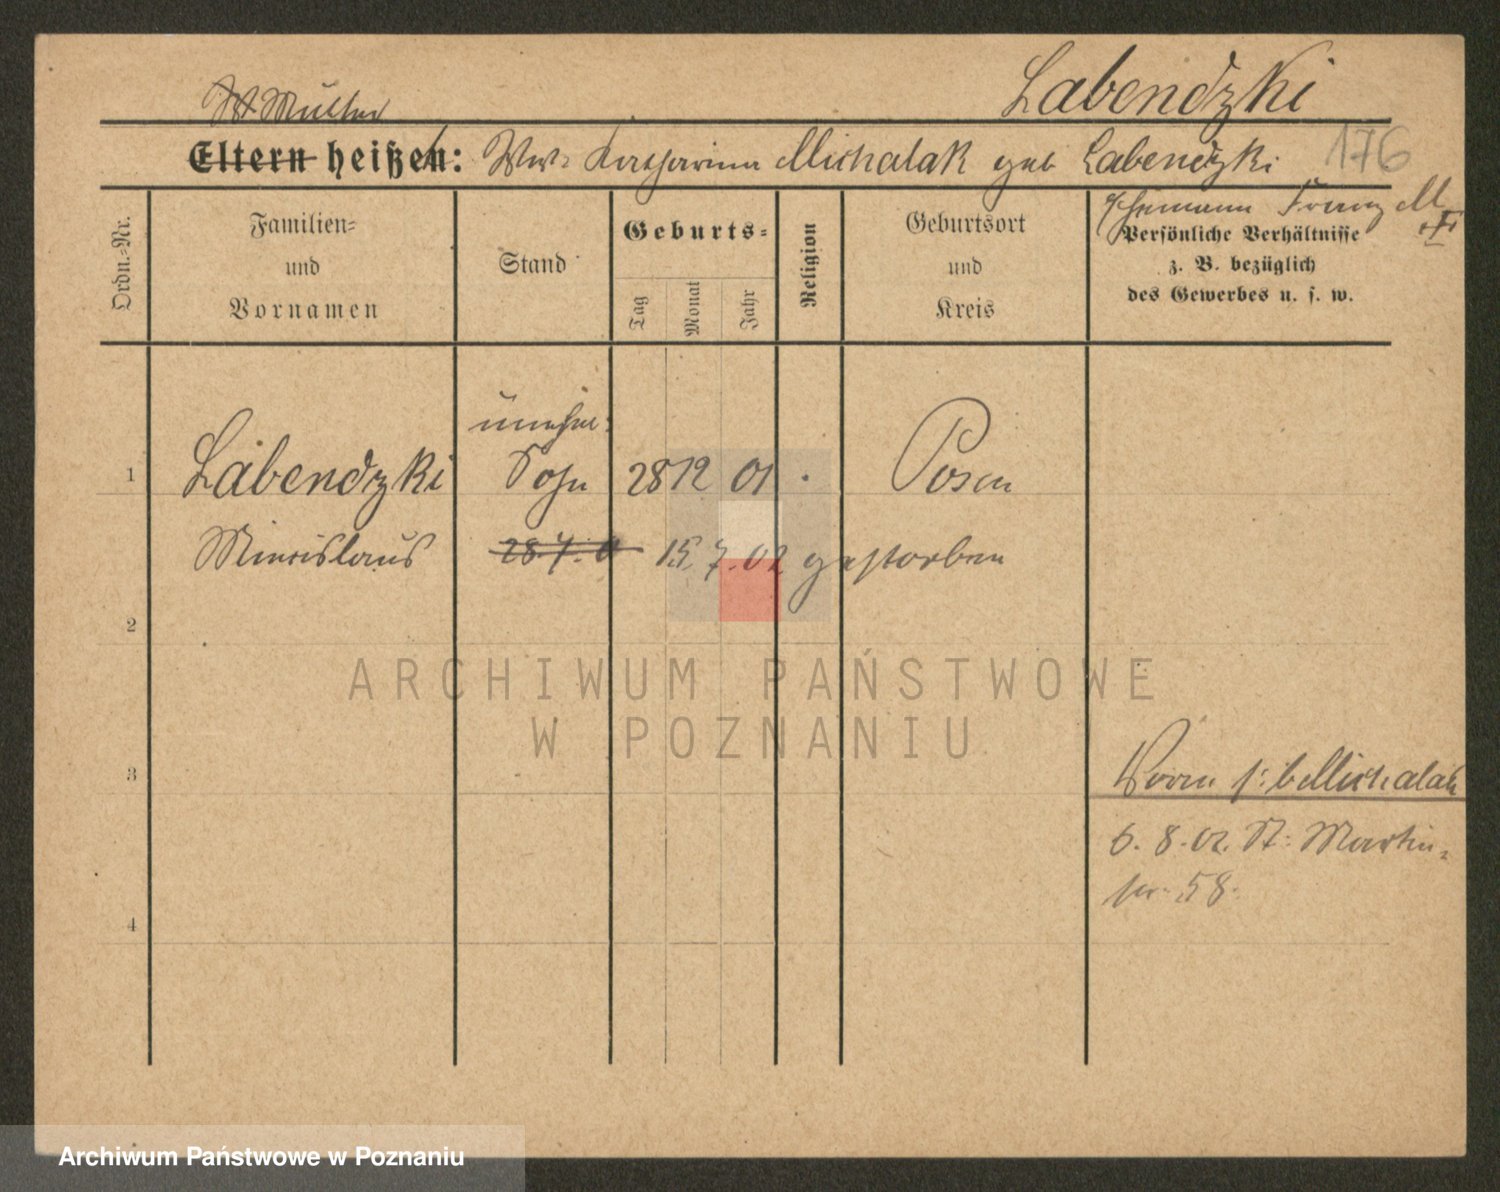 Labendzki
Mutter
Eltern heißen: Ww. Katharina Michalak geb Labendzki
176
Ehemann Franz M
Ordn.-Nr.
Familien-
und
Vornamen
Stand
Geburts-
Tag
Monat
Jahr
Religion
Geburtsort
und
Kreis
Persönliche Verhältnisse
z. B. bezüglich
des Gewerbes u. s. w.
unehel:
1 Labendzki Sohn 28 12 01 Posen
Miecislaus 28.7.0 15.7.02 gestorben
2
3
4
Michalak
6. 8. 02. St. Martin-
58.
ARCHIWUM PAŃSTWOWE
W POZNANIU
Archiwum Państwowe w Poznaniu